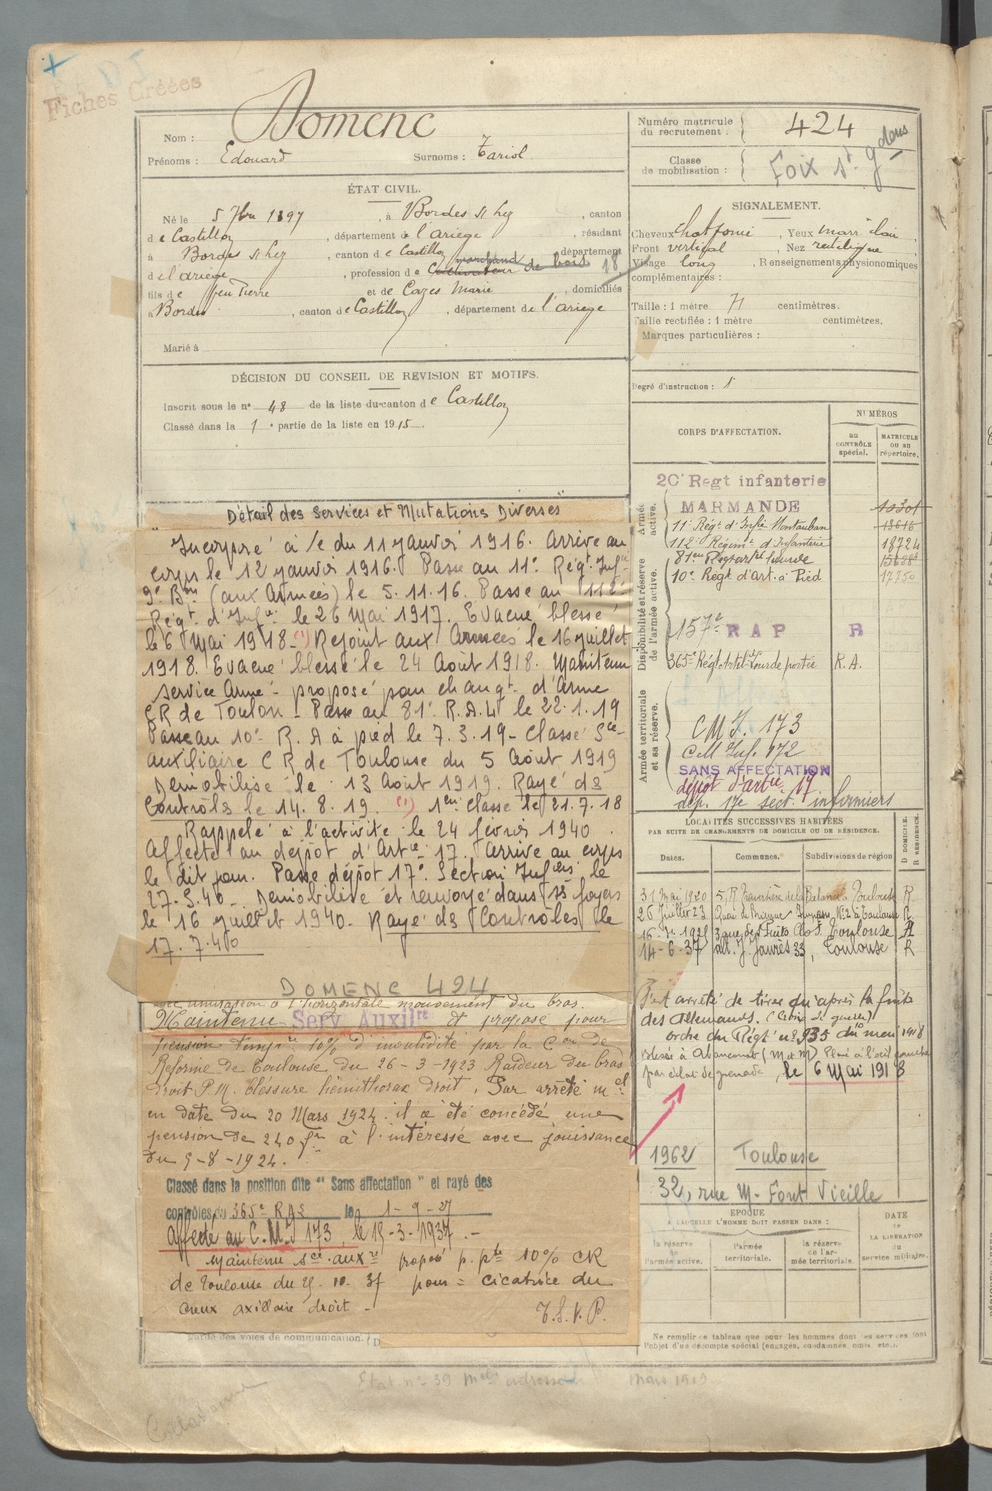 Fiches Créées
Nom : Domenc
Prénoms : Edouard Surnoms : Tariol
ÉTAT CIVIL.
Né le 5 7bre 1897, à Bordes s/ Ley, canton
de Castillon, département de l'ariège, résidant
à Bordes s/ Ley, canton de Castillon, département
de l'ariège, profession de Cultivateur marchand de bois
fils de feu Pierre et de Cazes Marie, domiciliés
à Bordes, canton de Castillon, département de l'ariège
Marié à
DÉCISION DU CONSEIL DE REVISION ET MOTIFS.
Inscrit sous le n° 48 de la liste du canton de Castillon
Classé dans la 1e partie de la liste en 1915.
Détail des Services et Mutations Diverses
Incorporé à /c du 11 janvier 1916. Arrivé au
corps le 12 janvier 1916. Passe au 11e Régt Infie
9e Bon (aux Armées) le 5.11.16. Passe au 112e
Régt d'Infie le 26 Mai 1917. Evacué blessé
le 6 Mai 1918. (1) Rejoint aux Armées le 16 juillet
1918. Evacué blessé le 24 Août 1918. Maintenu
service Armé - proposé pour changt d'Arme
CR de Toulon - Passe au 81e R.A.L le 22.1.19
Passe au 10e R.A à pied le 7.3.19 - Classé Sce
auxiliaire CR de Toulouse du 5 Août 1919
Démobilisé le 13 Août 1919. Rayé ds
Contrôls le 14.8.19. (1) 1ere classe le 21.7.18
Rappelé à l'activité le 24 février 1940.
Affecté au dépôt d'Artie 17. Arrive au corps
le dit jour. Passe dépôt 17e Section Infiers le
27.3.40. Demobilisé et renvoyé dans ss foyers
le 16 juillet 1940. Rayé ds Contrôles le
17.7.40
DOMENC 424
à l'horizontale mouvement du bras.
Maintenu Serv Auxilre et proposé pour
pension tempre 10% d'invalidité par la Con de
Réforme de Toulouse du 26-3-1923 Raideur du bras
droit P.M. blessure hémithorax droit. Par arrêté mel
en date du 20 Mars 1924 il a été concédé une
pension de 240 fr à l'intéressé avec jouissance
du 9-8-1924.
Classé dans la position dite "Sans affectation" et rayé des
contrôles du 365e RAS le 1-9-27
Affecté au C.M.I 173, le 15-3-1937.-
Maintenu sce auxre proposé p. pte 10% CR
de Toulouse du 10.37 pour = cicatrice du
creux axillaire droit -
T.S.V.P.
Garde des voies de communication.
Numéro matricule du recrutement : 424
Classe de mobilisation : Foix St Gdens
SIGNALEMENT.
Cheveux chat foncé, Yeux marr clair
Front vertical, Nez rectiligne
Visage long, Renseignements physionomiques
complémentaires :
Taille : 1 mètre 71 centimètres.
Taille rectifiée : 1 mètre centimètres.
Marques particulières :
Degré d'instruction : 1
CORPS D'AFFECTATION.
NUMÉROS
au CONTRÔLE spécial.
MATRICULE ou au répertoire.
Armée active.
20e Regt infanterie
MARMANDE
11e Régt d'Infie Montauban
112e Régiment d'Infanterie 18724
Disponibilité et réserve de l'armée active.
81eme Regt art lourde
10e Regt d'art. à Pied
157e RAP R
365e Régt Artil. Lourde portée R.A.
Armée territoriale et sa réserve.
CMI. 173
Cell Inf. 172
SANS AFFECTATION
dépôt d'artie 17
dep. 17e sect. infirmiers
LOCALITÉS SUCCESSIVES HABITÉES
PAR SUITE DE CHANGEMENTS DE DOMICILE OU DE RÉSIDENCE.
Dates. Communes. Subdivisions de région
D DOMICILE. R RÉSIDENCE.
31 Mai 1920 Toulouse R
26 juillet 23 Toulouse R
Toulouse R
14-6-37 all. J. Jaurès 33, Toulouse R
arrêté de tirer qu'après la fuite
des allemands. (Croix de guerre)
ordre du Régt n° 935 du 1918
par éclat de grenade, le 6 Mai 1918
1962 Toulouse
32, rue M- Font Vieille
EPOQUE
A LAQUELLE L'HOMME DOIT PASSER DANS :
la réserve de l'armée active.
l'armée territoriale.
la réserve de l'armée territoriale.
DATE de LA LIBÉRATION du service militaire.
Ne remplir ce tableau que pour les hommes dont les services font
l'objet d'un décompte spécial (engagés, condamnés, omis, etc.).